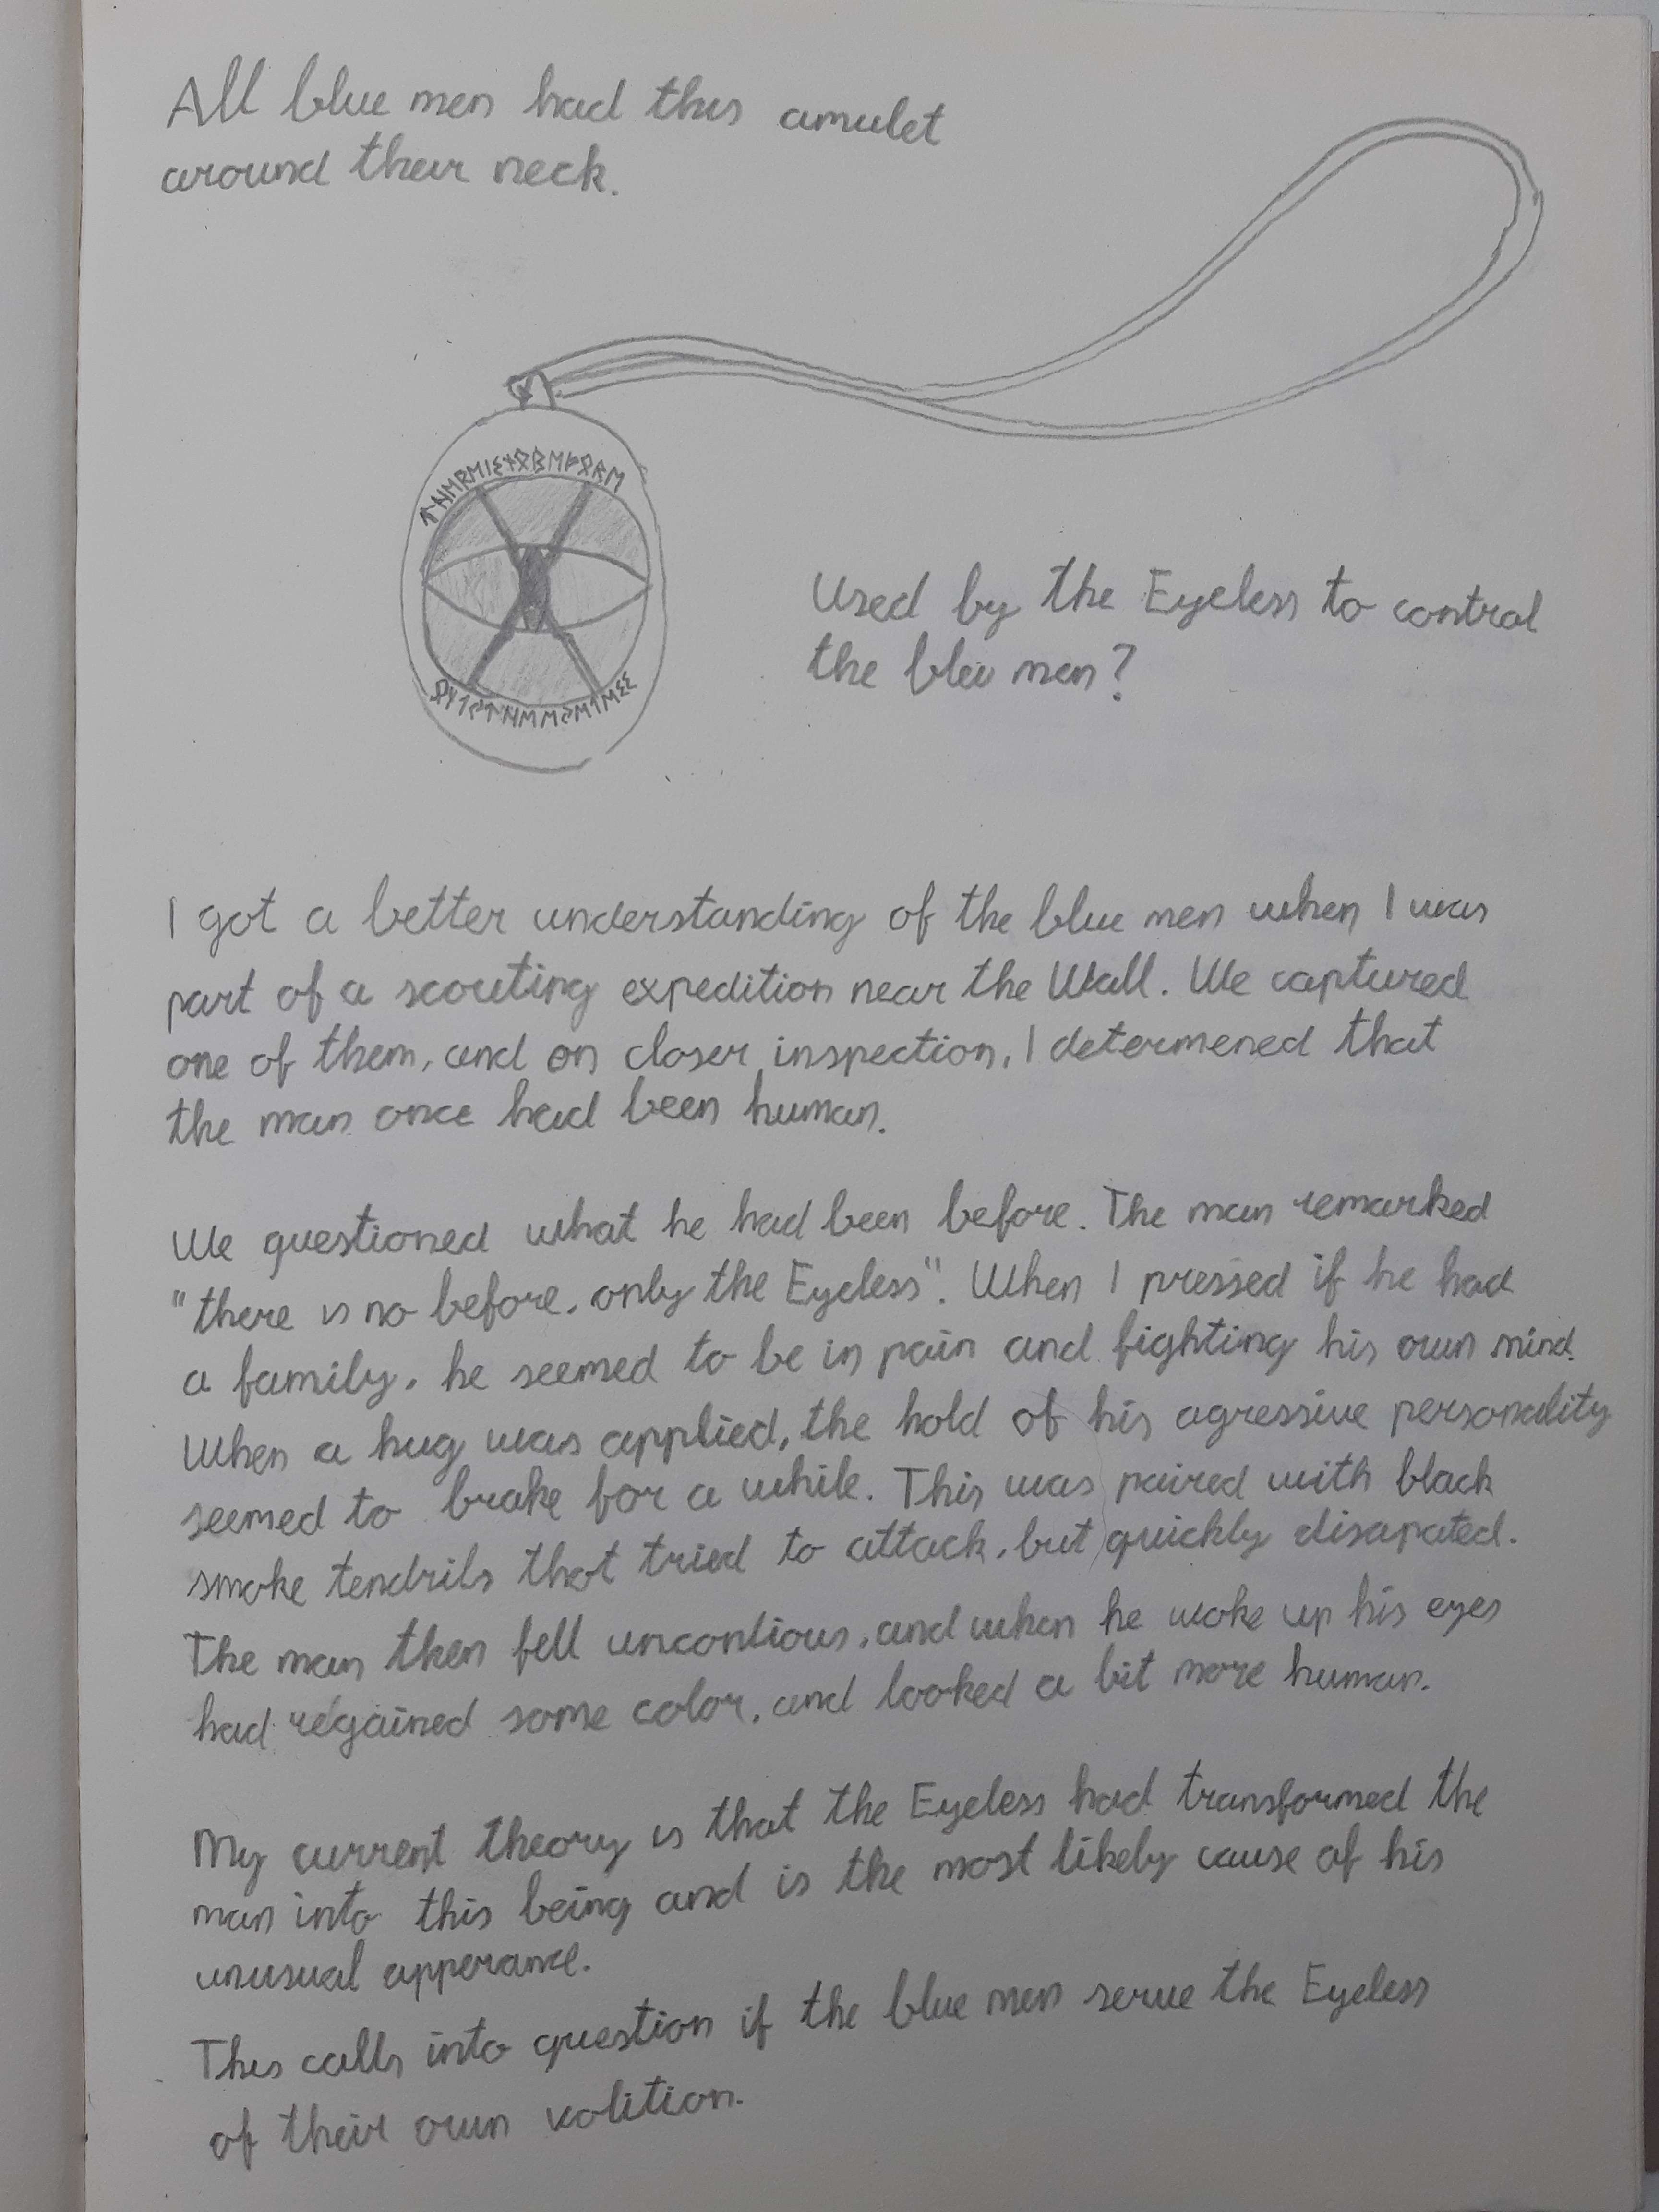 All blue men had this amulet
around their neck.
ᛏᚺᛖᚱᛖᛁᛊᚾᛟᛒᛖᚠᛟᚱᛖ
Used by the Eyeless to control
the bleu men?
I got a better understanding of the blue men when I was
part of a scouting expedition near the Wall. We captured
one of them, and on closer inspection, I determened that
the man once had been human.
We questioned what he had been before. The man remarked
"there is no before, only the Eyeless". When I pressed if he had
a family, he seemed to be in pain and fighting his own mind.
When a hug was applied, the hold of his agressive personality
seemed to brake for a while. This was paired with black
smoke tendrils that tried to attack, but quickly disapated.
The man then fell uncontious, and when he woke up his eyes
had regained some color, and looked a bit more human.
My current theory is that the Eyeless had transformed the
man into this being and is the most likely cause of his
unusual apperance.
This calls into question if the blue men serve the Eyeless
of their own volition.